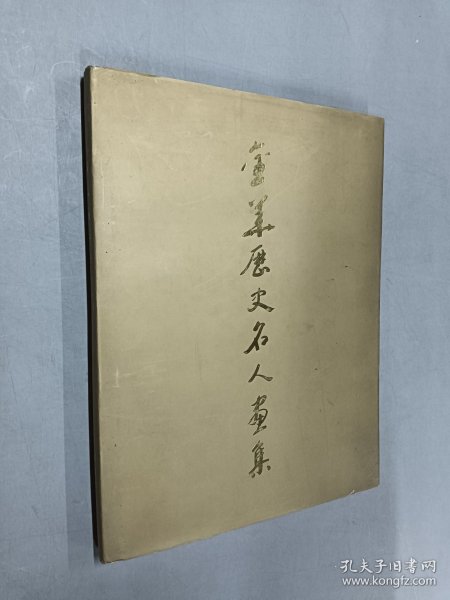 金华歷史名人畫集
孔夫子旧书网
www.kongfz.com